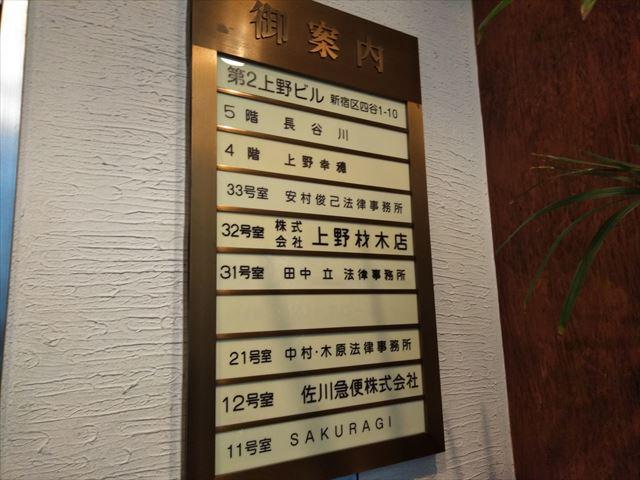 御案内
第2上野ビル 新宿区四谷1-10
5階 長谷川
4階 上野幸穗
33号室 安村俊己法律事務所
32号室 株式会社 上野材木店
31号室 田中 立 法律事務所
21号室 中村・木原法律事務所
12号室 佐川急便株式会社
11号室 SAKURAGI